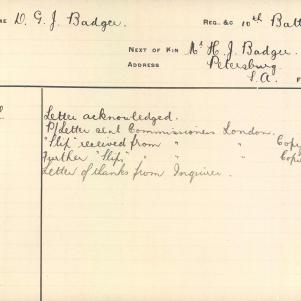 ME D. G. J. Badger. REG. &c 10th Batt
NEXT OF KIN Mr H. J. Badger.
ADDRESS Petersburg
S.A.
Letter acknowledged.
P/Letter sent Commissioners London.
"Slip" received from " " Copy
Further "Slip," " " " Cop
Letter of thanks from Inquirer.